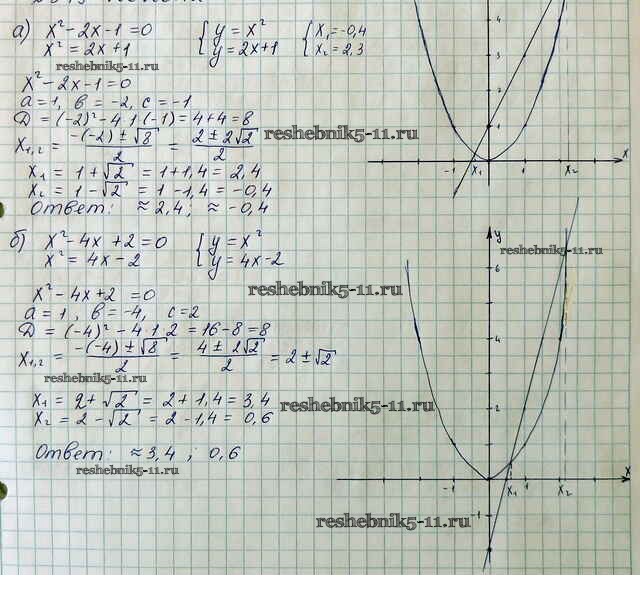 а) x² - 2x - 1 = 0 { y = x² { x₁ = -0,4
x² = 2x + 1 { y = 2x + 1 { x₂ = 2,3
reshebnik5-11.ru
x² - 2x - 1 = 0
a = 1, b = -2, c = -1
D = (-2)² - 4·1·(-1) = 4 + 4 = 8
x₁,₂ = (-(-2) ± √8)/2 = (2 ± 2√2)/2
reshebnik5-11.ru
x₁ = 1 + √2 = 1 + 1,4 = 2,4
x₂ = 1 - √2 = 1 - 1,4 = -0,4
Ответ: ≈ 2,4; ≈ -0,4
4
3
2
1
-1 x₁ 1 x₂ x
б) x² - 4x + 2 = 0 { y = x²
x² = 4x - 2 { y = 4x - 2
reshebnik5-11.ru
x² - 4x + 2 = 0
a = 1, b = -4, c = 2
D = (-4)² - 4·1·2 = 16 - 8 = 8
x₁,₂ = (-(-4) ± √8)/2 = (4 ± 2√2)/2 = 2 ± √2
reshebnik5-11.ru
x₁ = 2 + √2 = 2 + 1,4 = 3,4
x₂ = 2 - √2 = 2 - 1,4 = 0,6
reshebnik5-11.ru
Ответ: ≈ 3,4; 0,6
reshebnik5-11.ru
y
reshebnik5-11.ru
6
4
2
-1 x₁ 1 x₂ x
-1
reshebnik5-11.ru